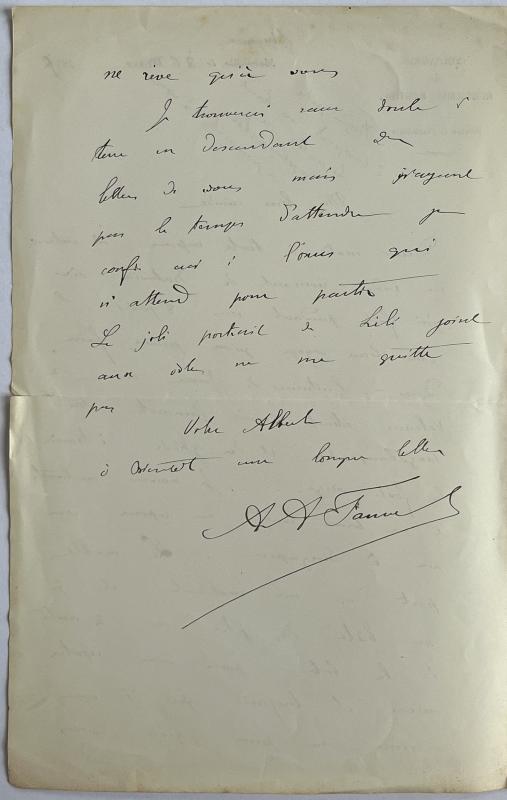 ne rêve qu'à vous
Je trouverai sans doute à
terre en descendant des
lettres de vous mais n'ayant
pas le temps d'attendre je
confie ceci à l'omus qui
n'attend pour partir
Le joli portrait de Lili joint
aux ne me quitte
pas
Votre Albert
à bientôt une longue lettre
A A Fauvel